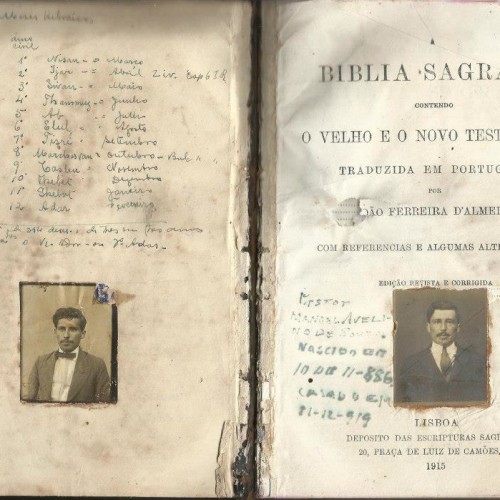 Meses Hebraicos.
ano
civil
1º Nisan - o Março
2º Ijar - - Abril
3º Sivan - o Maio
4º Thammuz - o Junho
5º Ab - o Julho
6º Elul - o Agosto
7º Tisri setembro
8º outubro
9º Casleu Novembro
10 Dezembro
11º Shebat janeiro
12 Adar Fevereiro
A
BIBLIA SAGRA
CONTENDO
O VELHO E O NOVO TEST
TRADUZIDA EM PORTUG
POR
JOÃO FERREIRA D'ALMEI
COM REFERENCIAS E ALGUMAS ALTE
EDIÇÃO REVISTA E CORRIGIDA
PASTOR
MANOEL AVELI
NO DE
NASCIDO EM
10 DE 11-886
CASADO EM
31-12-919
LISBOA
DEPOSITO DAS ESCRIPTURAS SAG
20, PRAÇA DE LUIZ DE CAMÕES,
1915